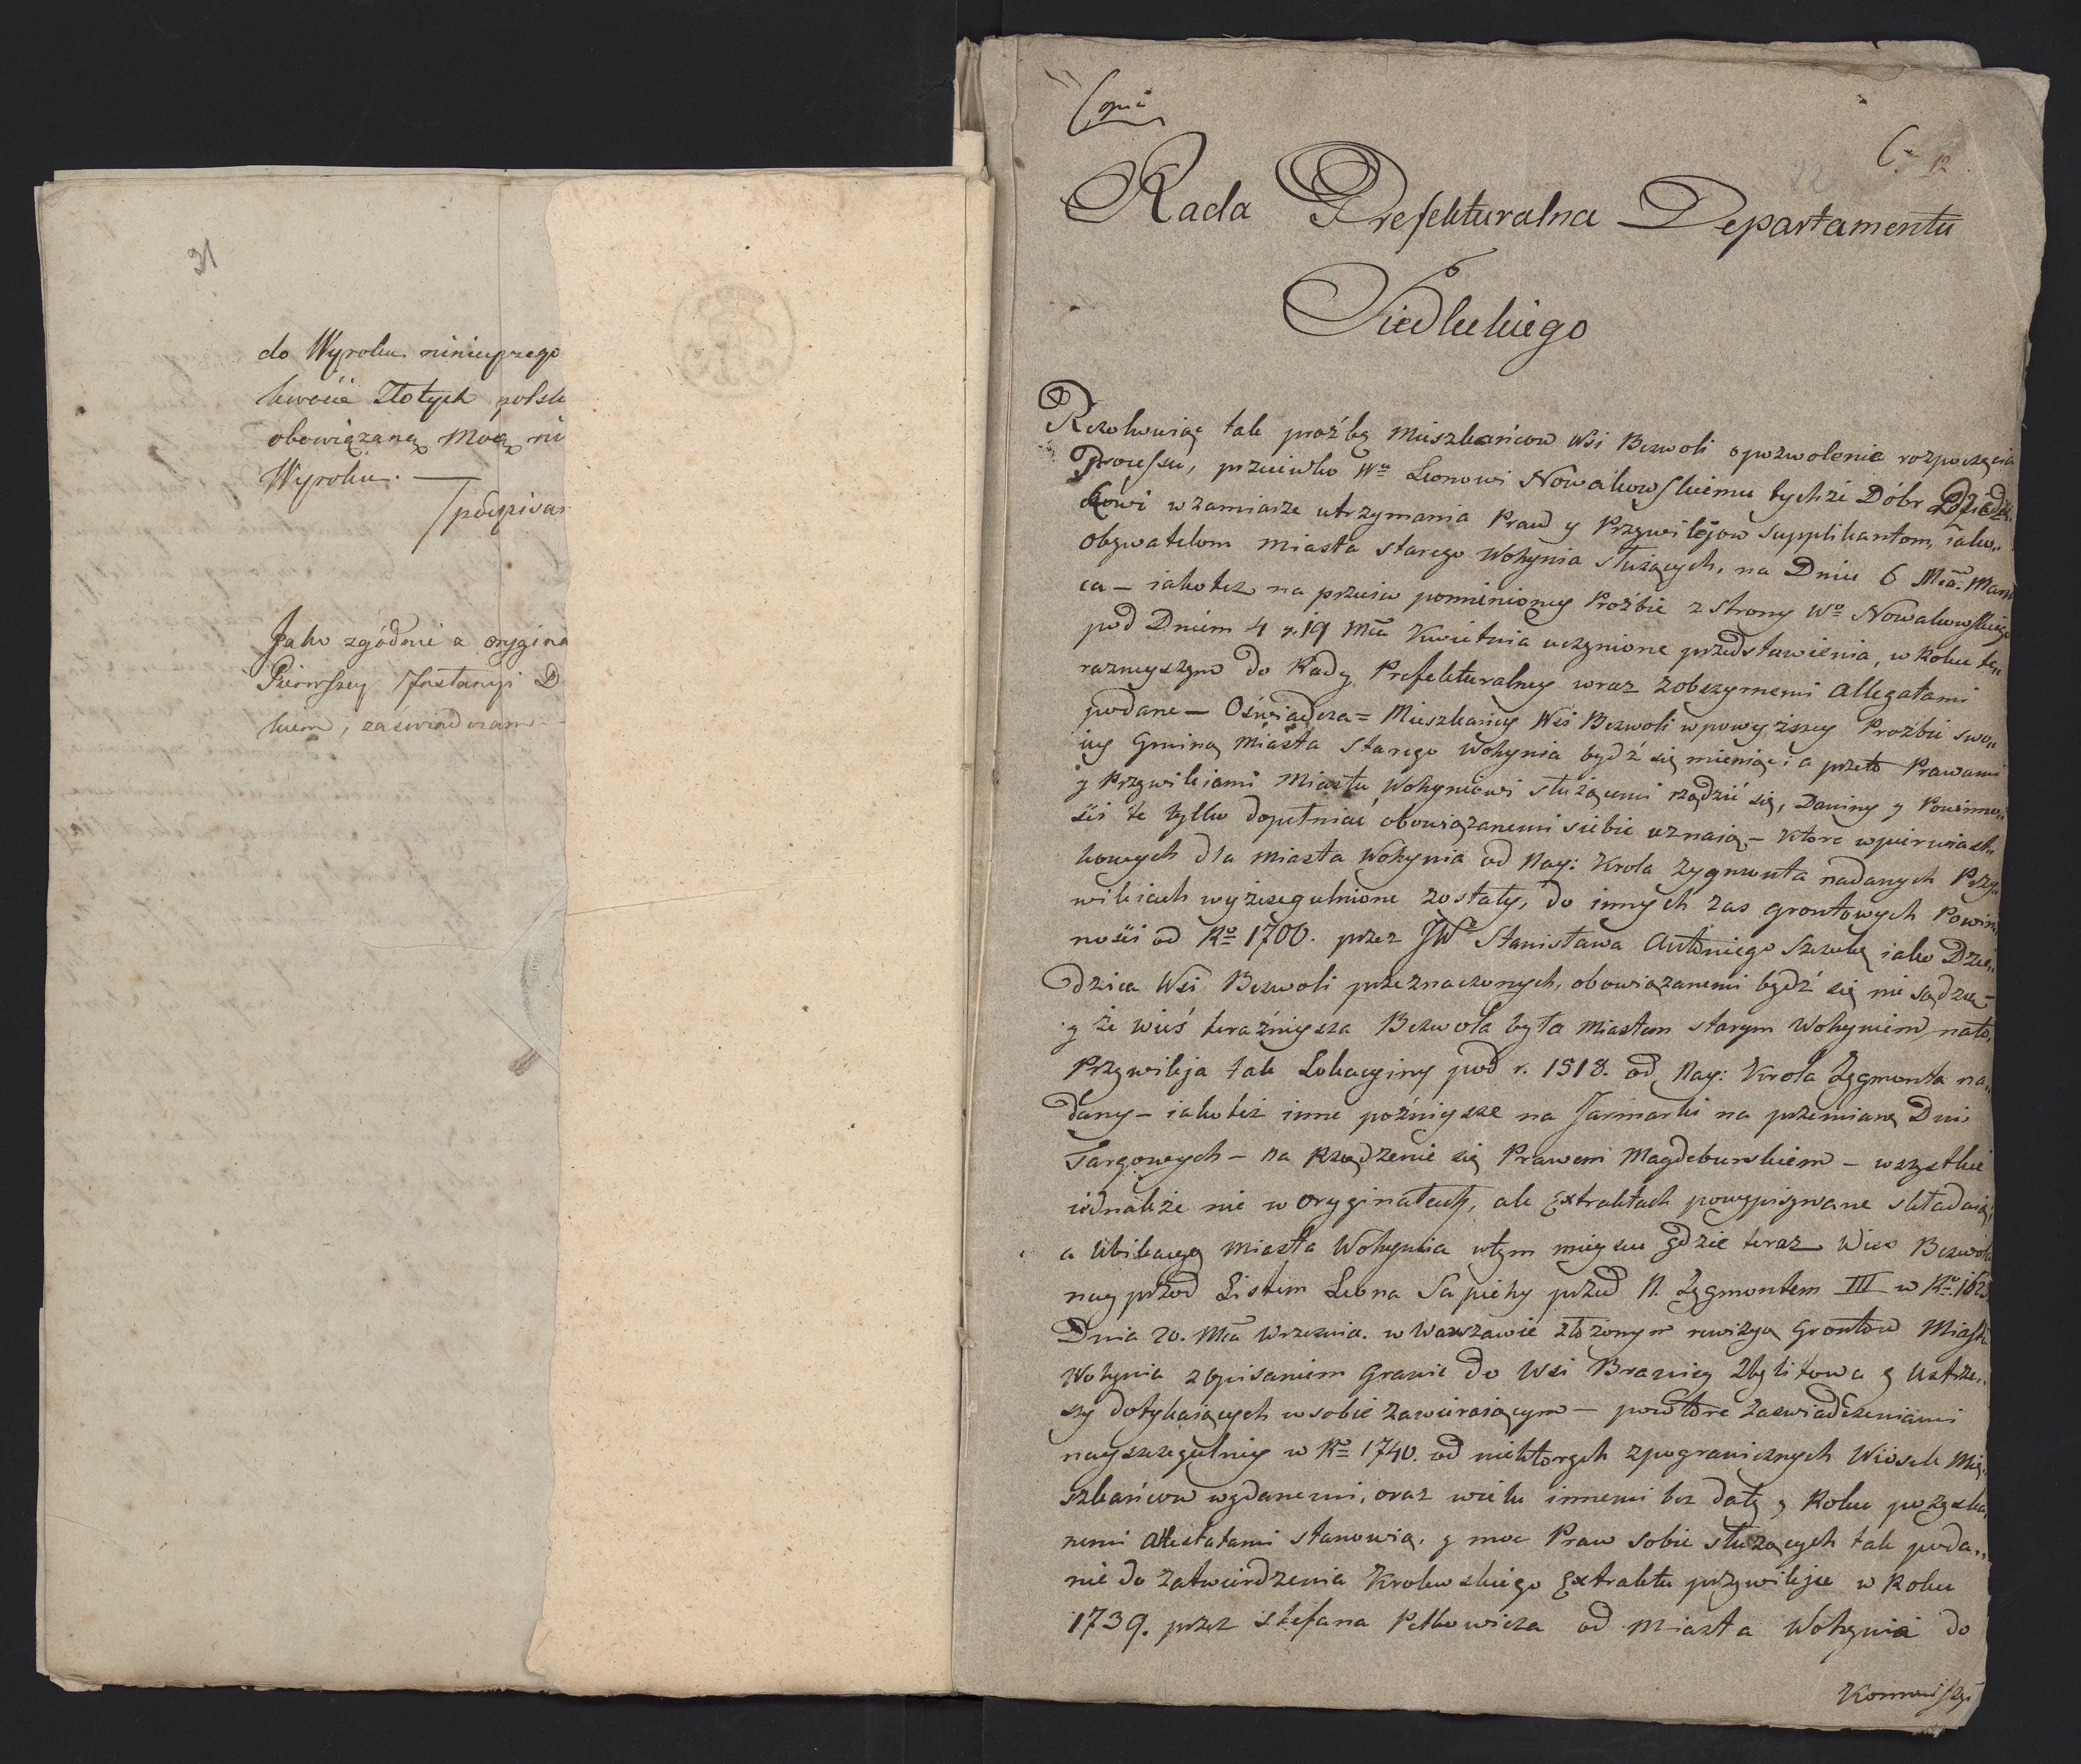 31
do Wyroku ninieyszego
kwocie Złotych polsk
obowiązaną Mocą ni
Wyroku. —
/podpisan
Jako zgodnie z orygina
Pierwszey Instancyi D
kiem, zaświadczam
Copia
C. 12
Rada Prefekturalna Departamentu
Siedleckiego
Rozwhowiąc tak proźbę Mieszkańcow Wsi Bezwoli o pozwolenie rozpoczęcia
Processu, przeciwko Wu Leonowi Nowakowskiemu tychże Dóbr Dziedzi„
cowi w zamiarze utrzymania Praw y Przywilejow supplikantom, iako„
obywatelom miasta starego Wohynia służących, na Dniu 6 Mca. Mar
ca — iakotez na przeciw pomienioney Proźbie z strony Wo Nowakowskiego
pod Dniem 4 y. 19 Mca Kwietnia uczynione przedstawienia, w Roku te„
raznieyszym do Rady Prefekturalney wraz z obszernemi allegatami
podane — Oświadcza = Mieszkańcy Wsi Bezwoli w powyższey Proźbie swo„
iey Gminą Miasta starego Wohynia bydź się mieniąc i a przeto Prawami
y Przywileiami Miastu Wohyniowi służącemi rządzić się, Daniny y Powinno„
ści te tylko dopełniać obowiązanemi siebie uznaią — ktore w pierwiast„
kowych dla miasta Wohynia od Nay: Krola Zygmunta nadanych Przy„
wileiach wyszczegulnione zostały, do innych zas grontowych Powin„
ności od Ro 1700. przez JWo Stanisława Antoniego Szczukę iako Dzie„
dzica Wsi Bezwoli przeznaczonych, obowiązanemi bydź się nie sądzą —
y że wieś teraźnieysza Bezwola była Miastem starym Wohyniem na to,
Przywileja tak Lokacyiny pod r. 1518. od Nay: Krola Zygmonta na„
dany — iakoteż inne poźnieysze na Jarmarki na przemianę Dni
Targowych — na Rządzenie się Prawem Magdeburskiem — wszystkie
iednakże nie w oryginałach, ale Extraktach powypisywane składaią,
a Ubikacyą Miasta Wohynia w tym mieyscu gdzie teraz Wies Bezwola
nayprzod Listem Leona Sapiehy przed N. Zygmontem III w Ro. 162
Dnia 20. Mca Wrzesnia. w Warszawie złożonym rewizyą Grontow Miasta
Wohynia z opisaniem Granic do Wsi Branicy Zbylitowa y Ustrze„
szy dotykaiących w sobie zawieraiącym — powtore zaswiadczeniami
nayszczegulniey w Ro 1740. od niektorych z pogranicznych Wiosek Mie„
szkańcow wydanemi, oraz wielu innemi bez daty y Roku pozyska„
nemi attestatami stanowią, y moc Praw sobie służących tak poda„
nie do Zatwierdzenia Krolewskiego Extraktu przywileju w Roku
1739. przez Stefana Petkowicza od Miasta Wohynia do
Kommissyi